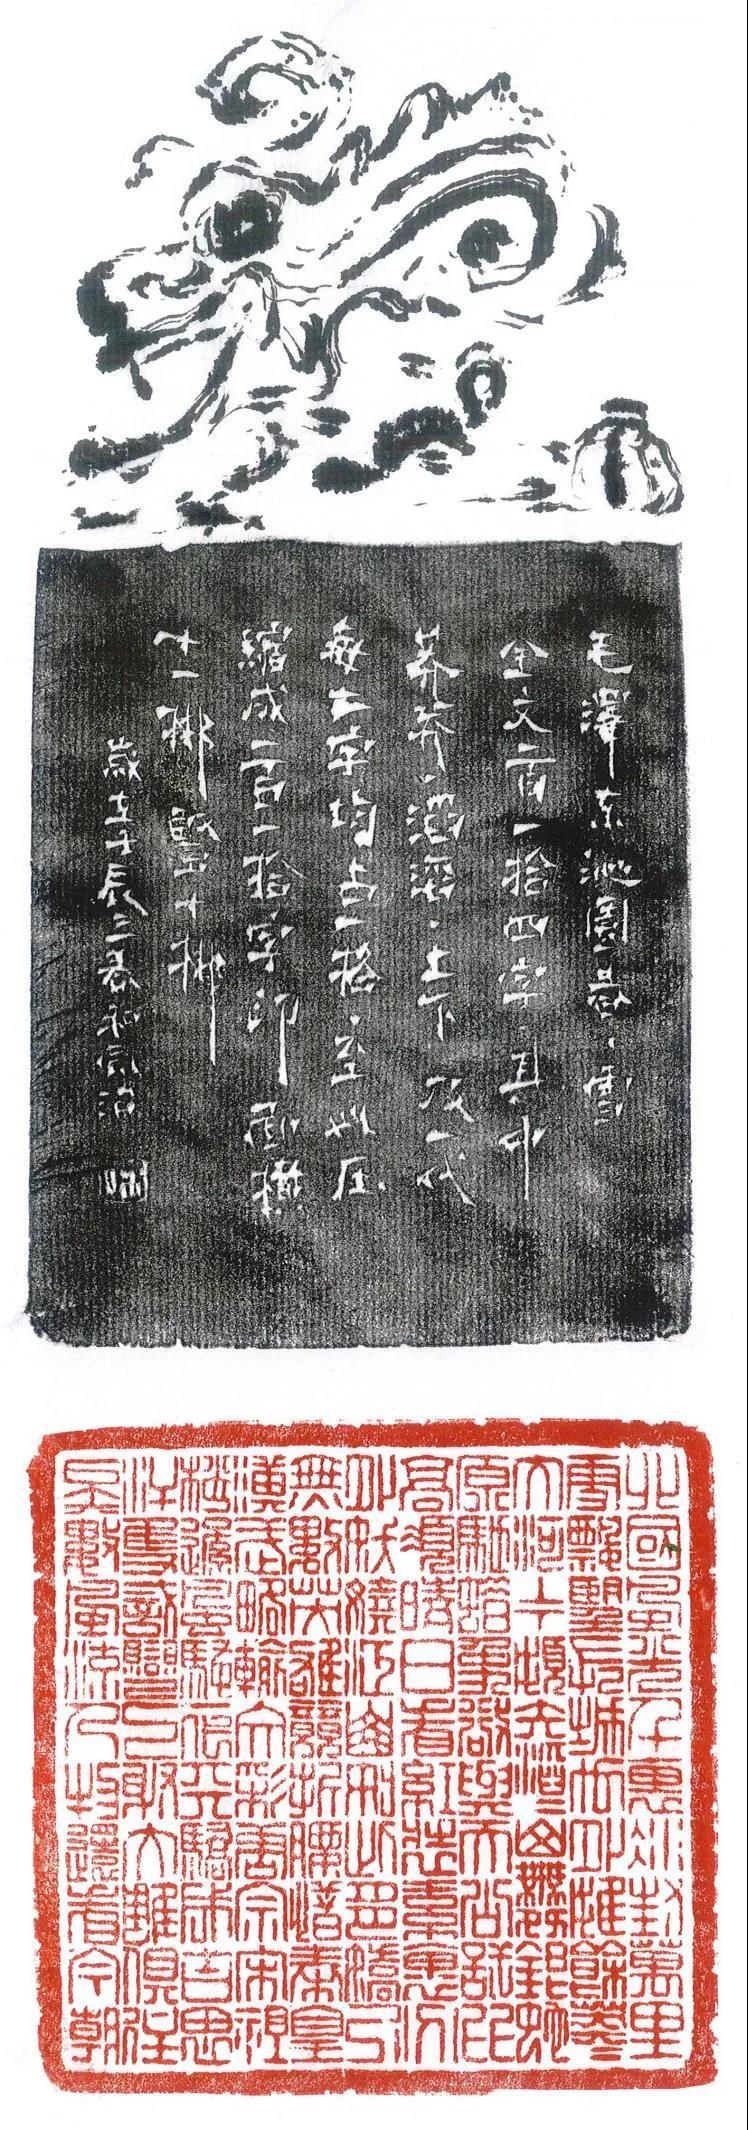 毛澤东沁園春·雪
全文一百一拾四字·其中
莽莽、滔滔、上下及一代
每二字均占一格·至此压
縮成一百一拾字印面橫
十一櫛竪十櫛
歲在壬辰三春
北國風光千里冰封萬里
雪飄望長城內外惟餘莽莽
大河上下頓失滔滔山舞銀蛇
原馳蠟象欲與天公試比
高須晴日看紅裝素裹分
外妖嬈江山如此多嬌引
無數英雄競折腰惜秦皇
漢武略輸文彩唐宗宋祖
稍遜風騷一代天驕成吉思
汗隻識彎弓射大雕俱往
矣數風流人物還看今朝